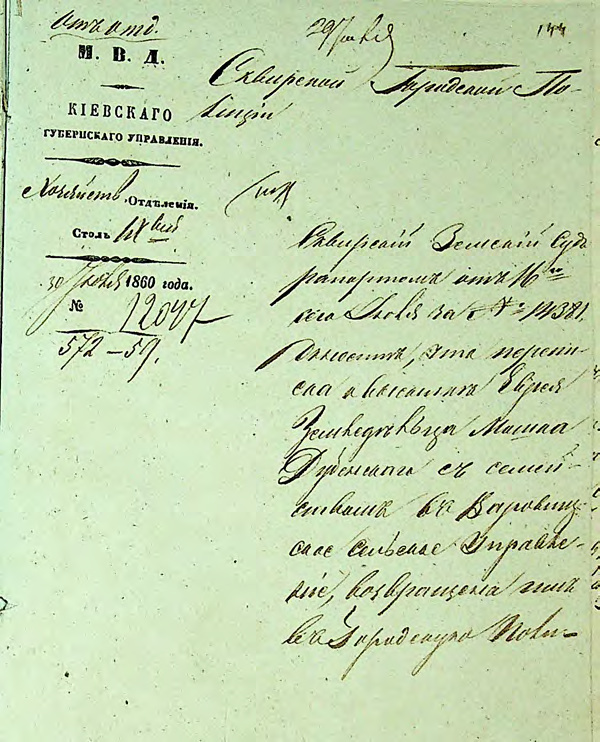 29 Июля
144
М. В. Д.
КІЕВСКАГО
ГУБЕРНСКАГО УПРАВЛЕНІЯ.
Хозяйств. Отдѣленія.
Столъ
30 Іюня 1860 года.
№ 12047
572 – 59.
Сквирской Городской По-
лиціи
Сквирскій Земскій Судъ
рапортомъ отъ 16го
сего Іюня за № 11381
доноситъ, что перепи-
ска о высылкѣ Еврея
Земледѣльца Мошка
Дубенскаго съ семей-
ствомъ въ
ское Сельское Управле-
ніе, возвращена имъ
въ Городскую Поли-